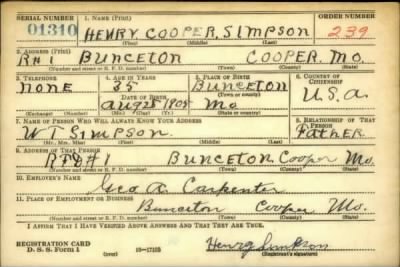 SERIAL NUMBER 1. NAME (Print) ORDER NUMBER
01310 HENRY COOPER SIMPSON 239
(First) (Middle) (Last)
2. ADDRESS (Print)
RH 1 BUNCETON COOPER MO.
(Number and street or R. F. D. number) (Town) (County) (State)
3. TELEPHONE 4. AGE IN YEARS 5. PLACE OF BIRTH 6. COUNTRY OF CITIZENSHIP
NONE 35 BUNCETON U.S.A.
DATE OF BIRTH (Town or county)
Aug 25 1905 Mo
(Exchange) (Number) (Mo.) (Day) (Yr.) (State or country)
7. NAME OF PERSON WHO WILL ALWAYS KNOW YOUR ADDRESS 8. RELATIONSHIP OF THAT PERSON
W T SIMPSON. FATHER
(Mr., Mrs., Miss) (First) (Middle) (Last)
9. ADDRESS OF THAT PERSON
RFD#1 BUNCETON Cooper Mo.
(Number and street or R. F. D. number) (Town) (County) (State)
10. EMPLOYER'S NAME
Geo A. Carpenter
11. PLACE OF EMPLOYMENT OR BUSINESS
Bunceton Cooper Mo.
(Number and street or R. F. D. number) (Town) (County) (State)
I AFFIRM THAT I HAVE VERIFIED ABOVE ANSWERS AND THAT THEY ARE TRUE.
REGISTRATION CARD Henry Simpson
D. S. S. Form 1 16-17105 (Registrant's signature)